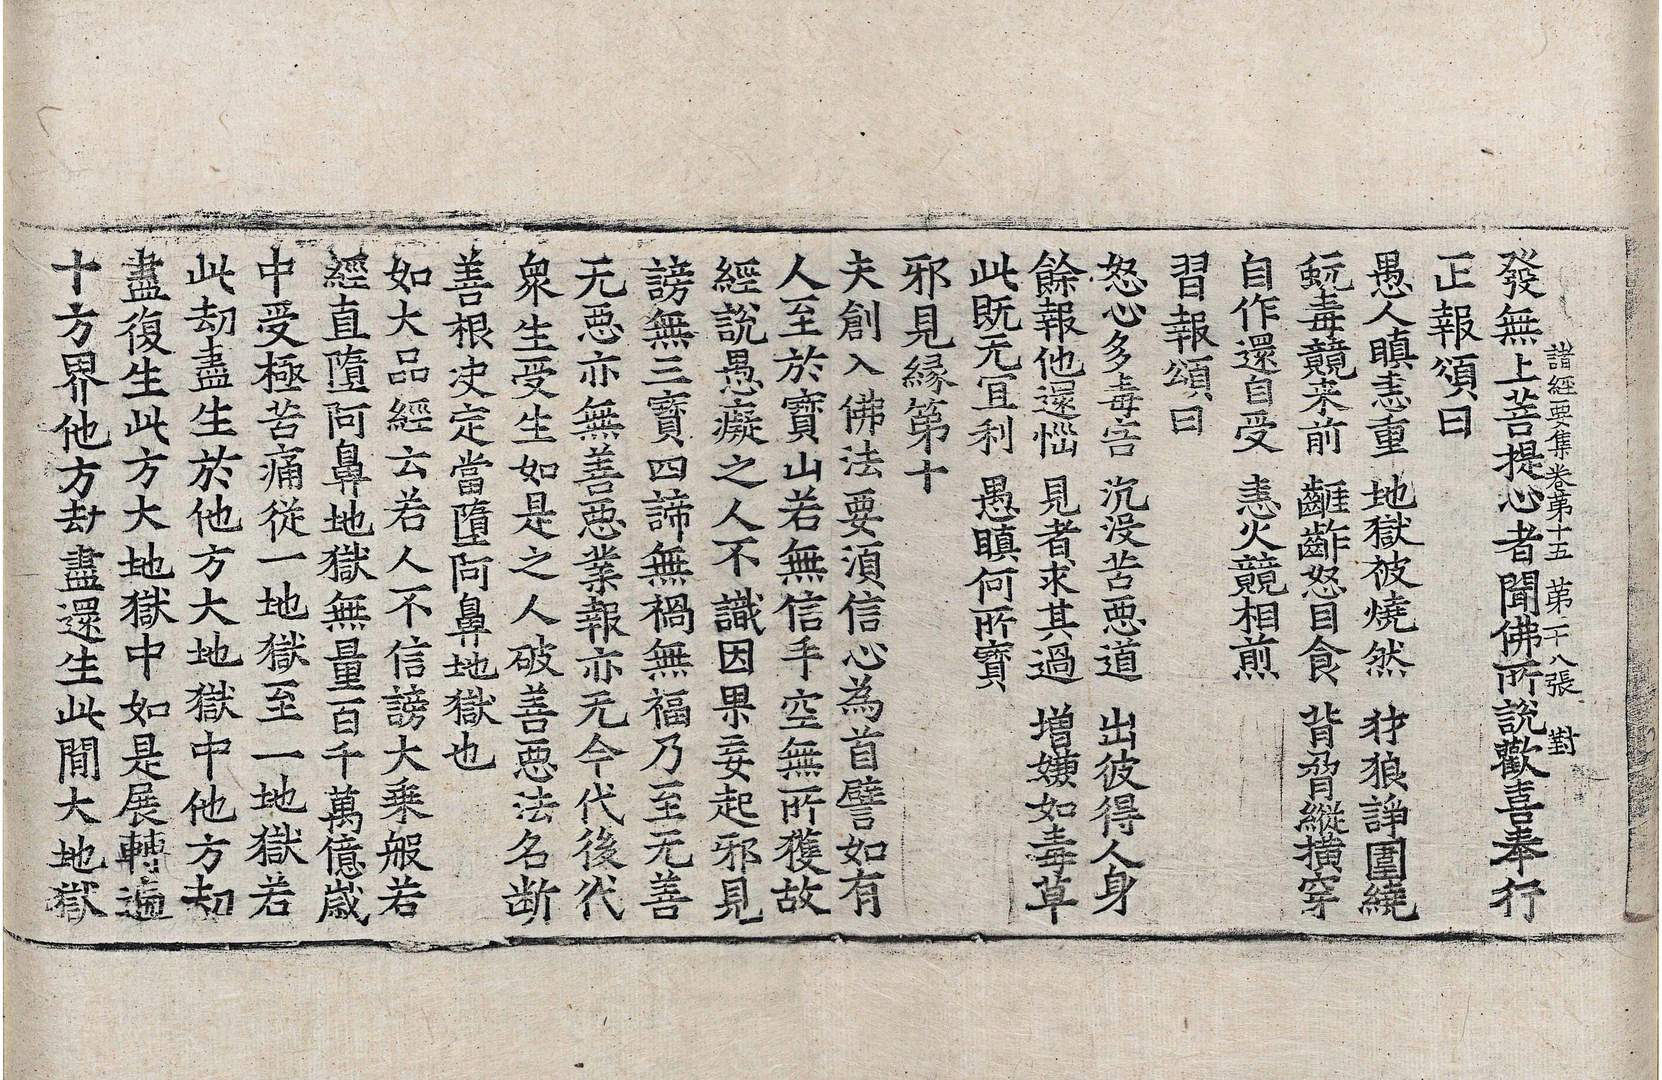 諸經要集卷第十五 第二十八張 對
發無上菩提心者聞佛所說歡喜奉行
正報頌曰
愚人瞋恚重 地獄被燒然 犲狼諍圍繞
蚖毒競来前 齜齚怒目食 背脅縱橫穿
自作還自受 恚火競相煎
習報頌曰
怒心多毒害 沉没苦惡道 出彼得人身
餘報他還惱 見者求其過 增嫌如毒草
此既无宜利 愚瞋何所寶
邪見縁第十
夫創入佛法要湏信心為首譬如有
人至於寶山若無信手空無所獲故
經說愚癡之人不識因果妄起邪見
謗無三寶四諦無禍無福乃至无善
无惡亦無善惡業報亦无今代後代
衆生受生如是之人破善惡法名断
善根决定當墮阿鼻地獄也
如大品經云若人不信謗大乗般若
經直墮阿鼻地獄無量百千萬億歲
中受極苦痛從一地獄至一地獄若
此劫盡生於他方大地獄中他方劫
盡復生此方大地獄中如是展轉遍
十方界他方劫盡還生此間大地獄